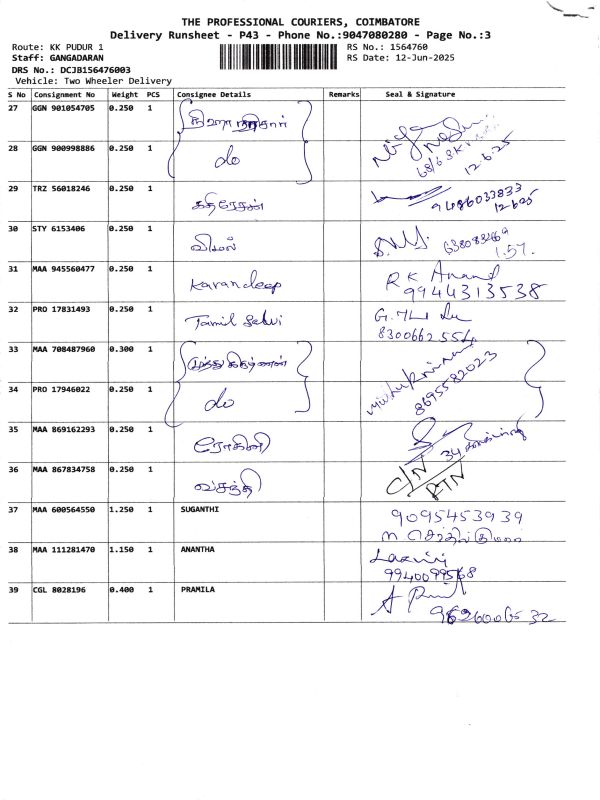 THE PROFESSIONAL COURIERS, COIMBATORE
Delivery Runsheet - P43 - Phone No.:9047080280 - Page No.:3
Route: KK PUDUR 1 RS No.: 1564760
Staff: GANGADARAN RS Date: 12-Jun-2025
DRS No.: DCJB156476003
Vehicle: Two Wheeler Delivery
S No Consignment No Weight PCS Consignee Details Remarks Seal & Signature
27 GGN 901054705 0.250 1
28 GGN 900998886 0.250 1 do 12-6-25
29 TRZ 56018246 0.250 1 கதிரேசன் 9486033833
12-6-25
30 STY 6153406 0.250 1 விமல் 1.57.
31 MAA 945560477 0.250 1 Karandeep R K Anand
9944313538
32 PRO 17831493 0.250 1 Tamil Selvi
8300662554
33 MAA 708487960 0.300 1 முத்துகிருஷ்ணன் Muthu Krishnan
34 PRO 17946022 0.250 1 do 8695582023
35 MAA 869162293 0.250 1 ரோகினி
36 MAA 867834758 0.250 1 வசந்தி C/N
RTN
37 MAA 600564550 1.250 1 SUGANTHI 9095453939
38 MAA 111281470 1.150 1 ANANTHA Laxmi
9940099568
39 CGL 8028196 0.400 1 PRAMILA